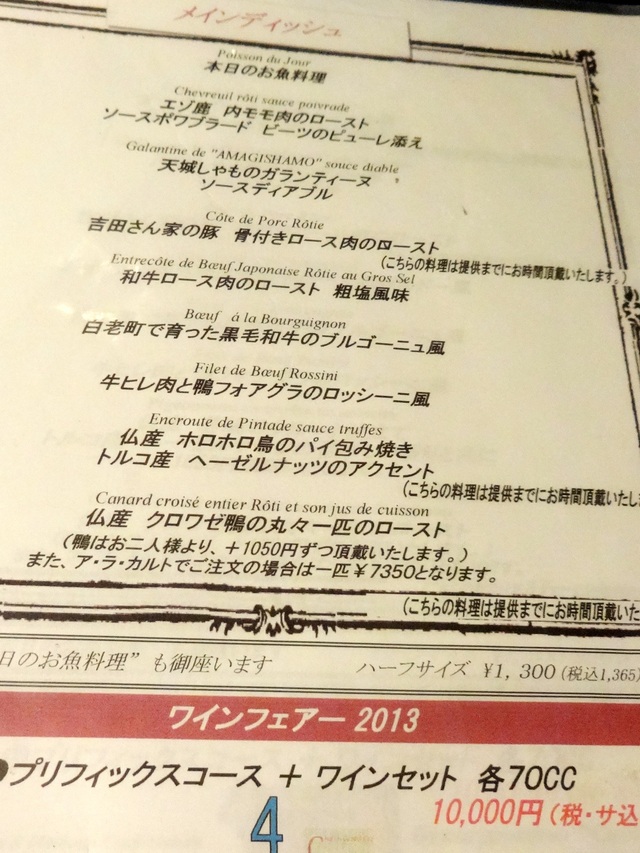 メインディッシュ
Poisson du Jour
本日のお魚料理
Chevreuil rôti sauce poivrade
エゾ鹿 内モモ肉のロースト
ソースポワブラード ビーツのピューレ添え
Galantine de "AMAGISHAMO" souce diable
天城しゃものガランティーヌ
ソースディアブル
Côte de Porc Rôtie
吉田さん家の豚 骨付きロース肉のロースト
(こちらの料理は提供までにお時間頂戴いたします。)
Entrecôte de Bœuf Japonaise Rôtie au Gros Sel
和牛ロース肉のロースト 粗塩風味
Bœuf á la Bourguignon
白老町で育った黒毛和牛のブルゴーニュ風
Filet de Bœuf Rossini
牛ヒレ肉と鴨フォアグラのロッシーニ風
Encroute de Pintade sauce truffes
仏産 ホロホロ鳥のパイ包み焼き
トルコ産 ヘーゼルナッツのアクセント
(こちらの料理は提供までにお時間頂戴いたしま
Canard croisé entier Rôti et son jus de cuisson
仏産 クロワゼ鴨の丸々一匹のロースト
(鴨はお二人様より、+1050円ずつ頂戴いたします。)
また、ア・ラ・カルトでご注文の場合は一匹¥7350となります。
(こちらの料理は提供までにお時間頂戴いた
日のお魚料理” も御座います ハーフサイズ ¥1,300 (税込1,365)
ワインフェアー 2013
●プリフィックスコース + ワインセット 各70CC
10,000円 (税・サ込
4